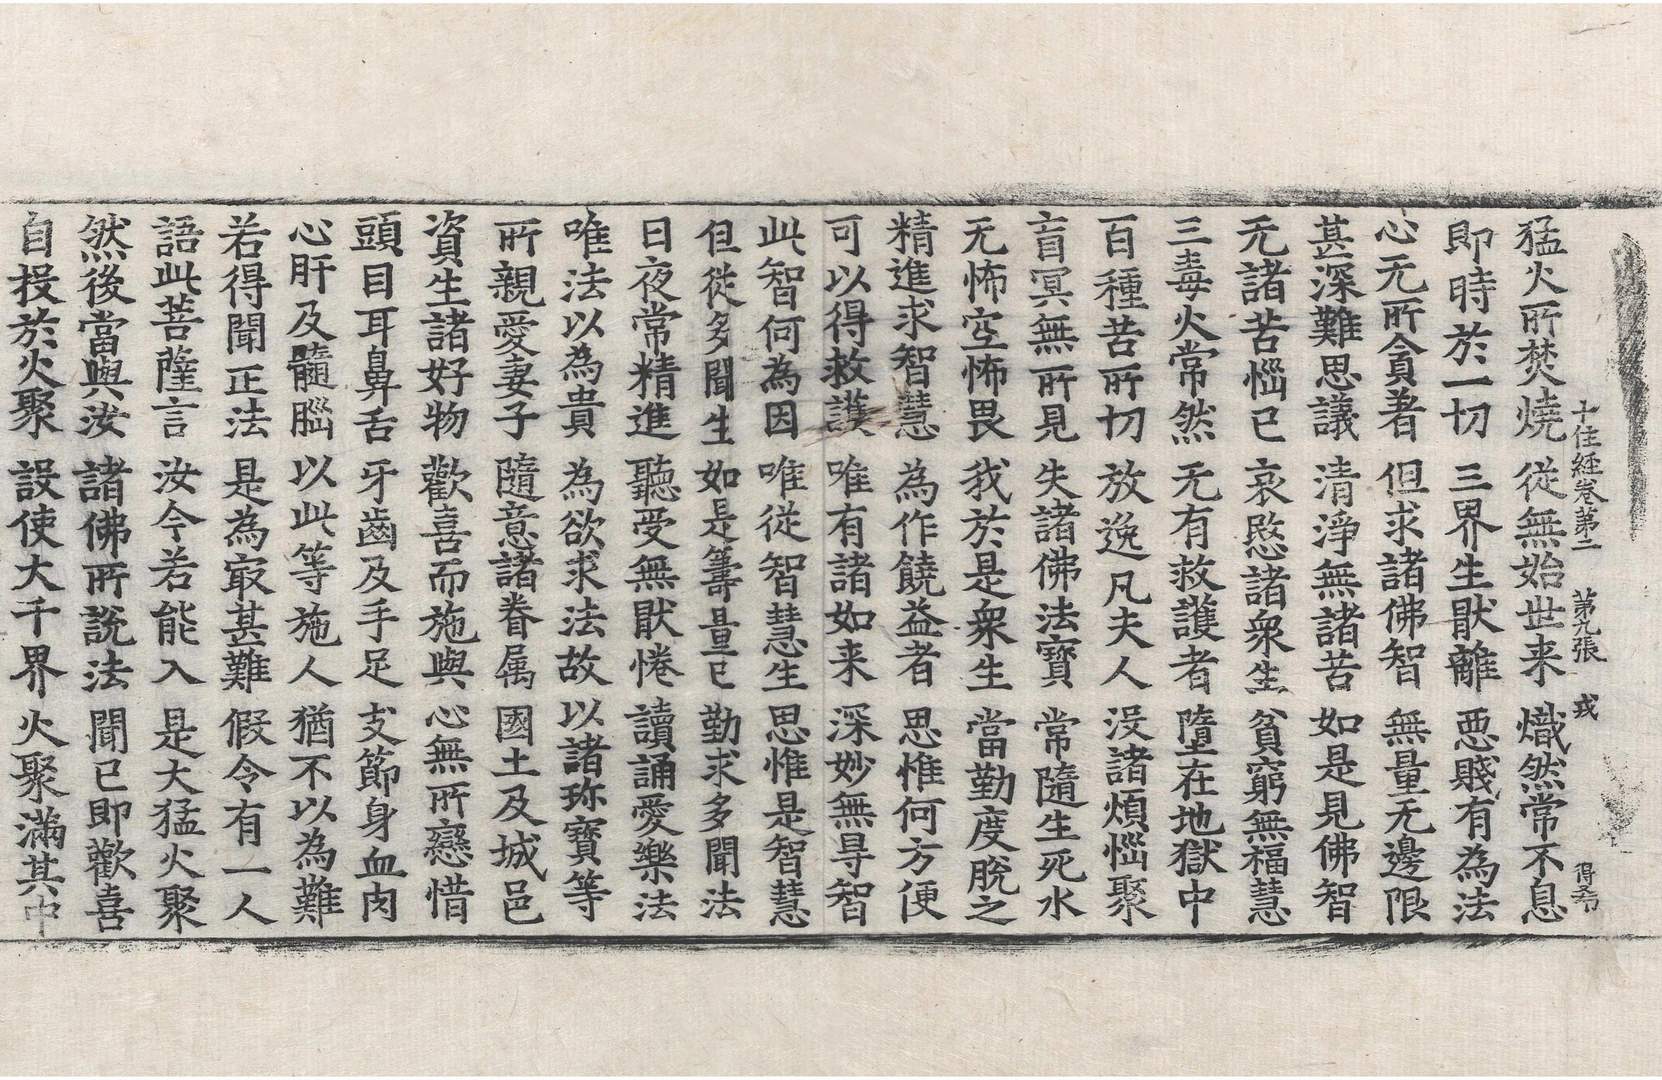 十住經卷第二 第九張 戎 得希
猛火所焚燒 從無始世来 熾然常不息
即時於一切 三界生猒離 惡賤有為法
心无所貪著 但求諸佛智 無量无邊限
甚深難思議 清淨無諸苦 如是見佛智
无諸苦惱已 哀愍諸衆生 貧窮無福慧
三毒火常然 无有救護者 墮在地獄中
百種苦所切 放逸凡夫人 没諸煩惱聚
盲冥無所見 失諸佛法寶 常隨生死水
无怖空怖畏 我於是衆生 當勤度脫之
精進求智慧 為作饒益者 思惟何方便
可以得救護 唯有諸如来 深妙無㝵智
此智何為因 唯從智慧生 思惟是智慧
但從多聞生 如是籌量已 勤求多聞法
日夜常精進 聽受無猒惓 讀誦愛樂法
唯法以為貴 為欲求法故 以諸珎寶等
所親愛妻子 隨意諸眷属 國土及城邑
資生諸好物 歡喜而施與 心無所戀惜
頭目耳鼻舌 牙齒及手足 支節身血肉
心肝及髓腦 以此等施人 猶不以為難
若得聞正法 是為㝡甚難 假令有一人
語此菩薩言 汝今若能入 是大猛火聚
然後當與汝 諸佛所說法 聞已即歡喜
自投於火聚 設使大千界 火聚滿其中